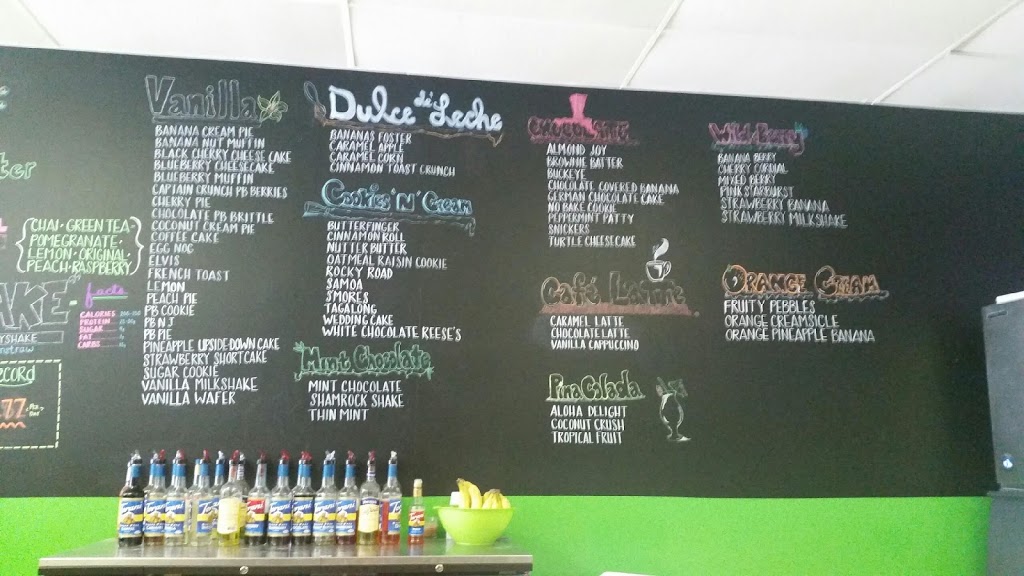 Vanilla
BANANA CREAM PIE
BANANA NUT MUFFIN
BLACK CHERRY CHEESE CAKE
BLUEBERRY CHEESECAKE
BLUEBERRY MUFFIN
CAPTAIN CRUNCH PB BERRIES
CHERRY PIE
CHOCOLATE PB BRITTLE
COCONUT CREAM PIE
COFFEE CAKE
EGG NOG
ELVIS
FRENCH TOAST
LEMON
PEACH PIE
PB COOKIE
PB N J
PB PIE
PINEAPPLE UPSIDE-DOWN CAKE
STRAWBERRY SHORTCAKE
SUGAR COOKIE
VANILLA MILKSHAKE
VANILLA WAFER
Dulce di Leche
BANANAS FOSTER
CARAMEL APPLE
CARAMEL CORN
CINNAMON TOAST CRUNCH
Cookies 'N' Cream
BUTTERFINGER
CINNAMON ROLL
NUTTER BUTTER
OATMEAL RAISIN COOKIE
ROCKY ROAD
SAMOA
S'MORES
TAGALONG
WEDDING CAKE
WHITE CHOCOLATE REESE'S
Mint Chocolate
MINT CHOCOLATE
SHAMROCK SHAKE
THIN MINT
CHOCOLATE
ALMOND JOY
BROWNIE BATTER
BUCKEYE
CHOCOLATE COVERED BANANA
GERMAN CHOCOLATE CAKE
PEPPERMINT PATTY
SNICKERS
TURTLE CHEESECAKE
Café Latte
CARAMEL LATTE
CHOCOLATE LATTE
VANILLA CAPPUCCINO
Pina Colada
ALOHA DELIGHT
COCONUT CRUSH
TROPICAL FRUIT
Wild Berry
BANANA BERRY
CHERRY CORDIAL
PINK STARBURST
STRAWBERRY BANANA
STRAWBERRY MILKSHAKE
ORANGE CREAM
FRUITY PEBBLES
ORANGE CREAMSICLE
ORANGE PINEAPPLE BANANA
CHAI · GREEN TEA ·
POMEGRANATE ·
LEMON · ORIGINAL ·
PEACH · RASPBERRY
AKE facts
CALORIES
PROTEIN
SUGAR
FAT
CARBS
Torani